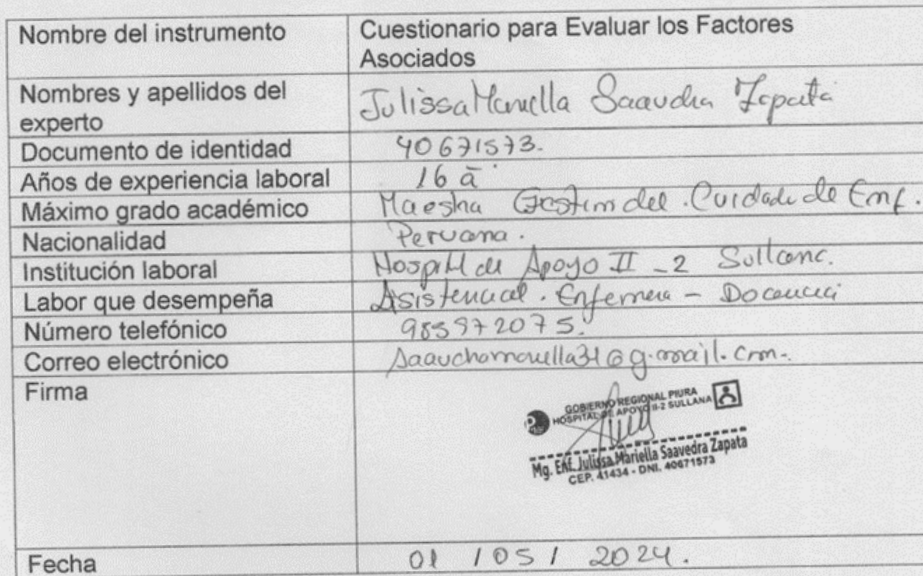 Nombre del instrumento Cuestionario para Evaluar los Factores
Asociados
Nombres y apellidos del
experto Julissa Mariella Saavedra Zapata
Documento de identidad 40671573.
Años de experiencia laboral 16 a
Máximo grado académico Maestra Gestion del Cuidado de Enf.
Nacionalidad Peruana.
Institución laboral Hospital de Apoyo II - 2 Sullana.
Labor que desempeña Asistencial. Enfermera - Docencia
Número telefónico 985972075.
Correo electrónico
Firma
GOBIERNO REGIONAL PIURA
HOSPITAL DE APOYO II-2 SULLANA
Mg. Enf. Julissa Mariella Saavedra Zapata
CEP. 41434 - DNI. 40671573
Fecha 01 / 05 / 2024.